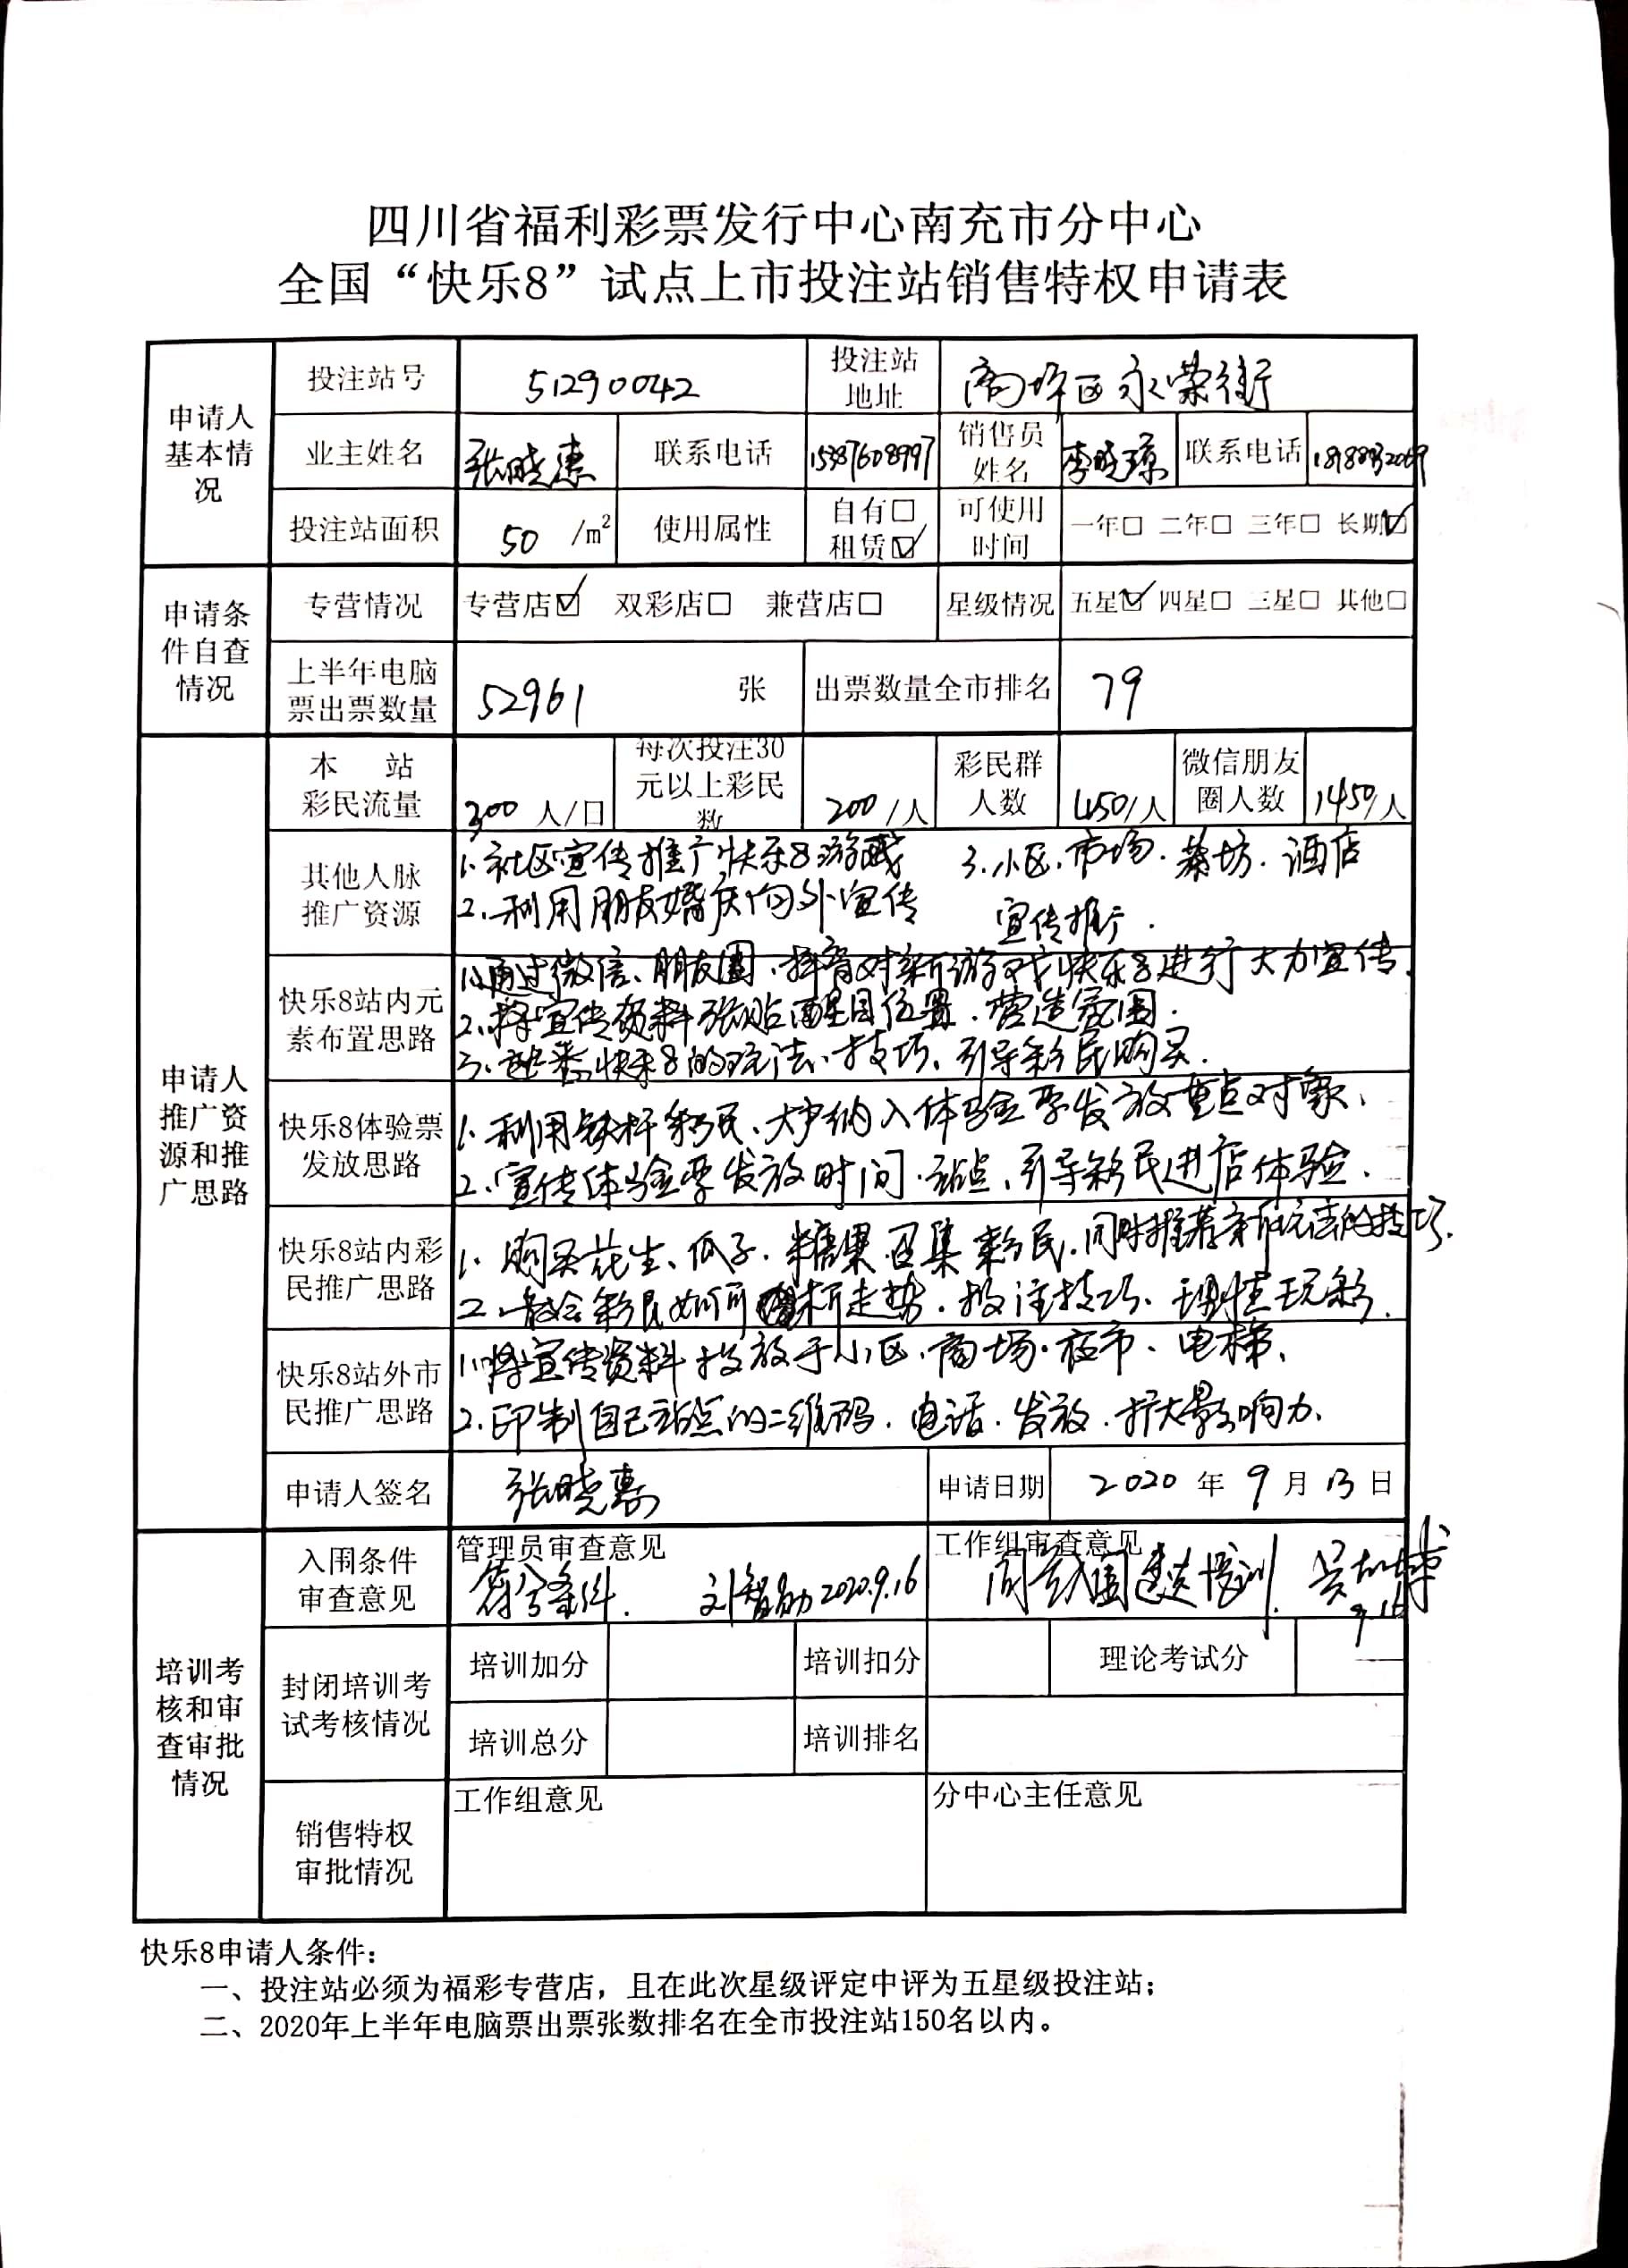 四川省福利彩票发行中心南充市分中心
全国“快乐8”试点上市投注站销售特权申请表
申请人基本情况
投注站号 51290042 投注站地址 高坪区永荣街
业主姓名 张晓惠 联系电话 销售员姓名 李晓琼 联系电话
投注站面积 50 /m² 使用属性 自有□ 租赁☑ 可使用时间 一年□ 二年□ 三年□ 长期☑
申请条件自查情况
专营情况 专营店☑ 双彩店□ 兼营店□ 星级情况 五星☑ 四星□ 三星□ 其他□
上半年电脑票出票数量 52961 张 出票数量全市排名 79
申请人推广资源和推广思路
本站彩民流量 300 人/日 每次投注30元以上彩民数 200/人 彩民群人数 450/人 微信朋友圈人数 1450/人
其他人脉推广资源
1.社区宣传推广快乐8游戏 3.小区.市场.茶坊.酒店
2.利用朋友婚庆向外宣传 宣传推广.
快乐8站内元素布置思路
1.通过微信、朋友圈、抖音对新游戏快乐8进行大力宣传.
2.将宣传资料张贴醒目位置.营造氛围.
3.熟悉快乐8的玩法、技巧、引导彩民购买.
快乐8体验票发放思路
1.利用铁杆彩民、大户纳入体验票发放重点对象、
2.宣传体验票发放时间.站点、引导彩民进店体验.
快乐8站内彩民推广思路
1.购买花生、瓜子.糖果.召集彩民.同时推荐新玩法的技巧.
2.教会彩民如何 析走势.投注技巧、理性玩彩.
快乐8站外市民推广思路
1.将宣传资料投放于小区.商场.夜市、电梯、
2.印制自己站点的二维码.电话.发放.扩大影响力、
申请人签名 张晓惠 申请日期 2020 年 9 月 13 日
培训考核和审查审批情况
入围条件审查意见
管理员审查意见 工作组审查意见
符合条件. 刘智勋 2020.9.16 同意入围 培训. 9.16
封闭培训考试考核情况
培训加分 培训扣分 理论考试分
培训总分 培训排名
销售特权审批情况
工作组意见 分中心主任意见
快乐8申请人条件：
一、投注站必须为福彩专营店，且在此次星级评定中评为五星级投注站；
二、2020年上半年电脑票出票张数排名在全市投注站150名以内。